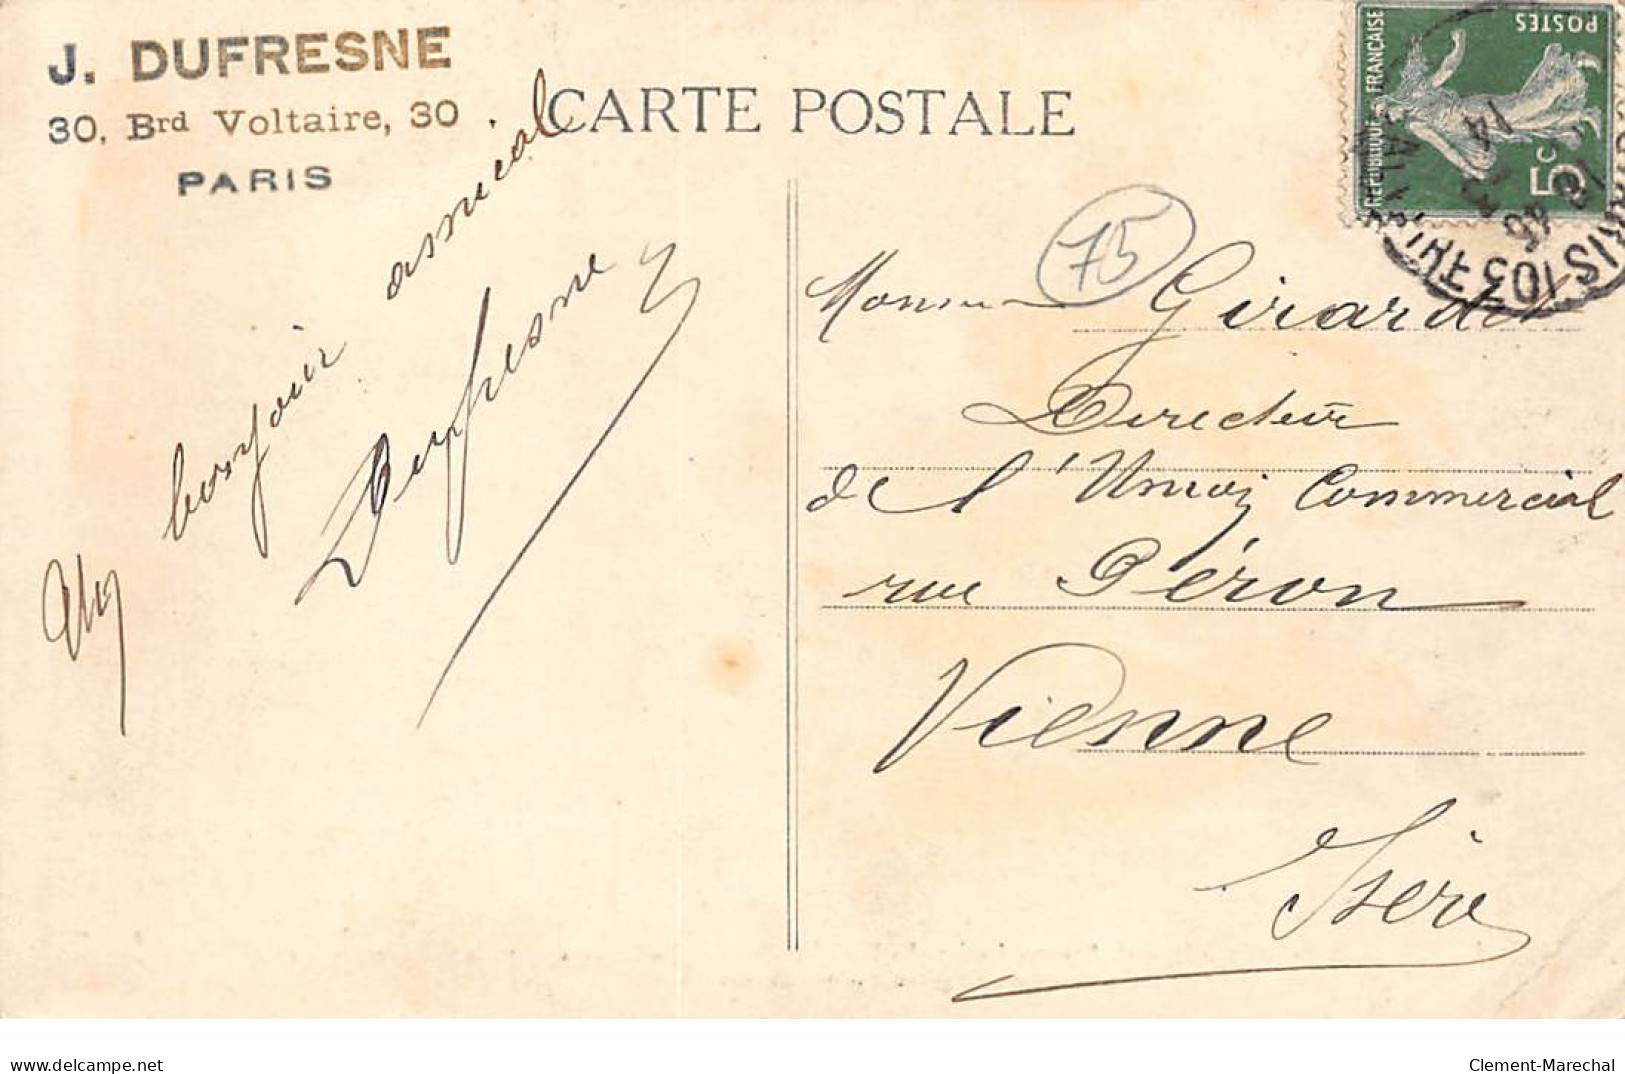 J. DUFRESNE
30, Brd Voltaire, 30
PARIS
CARTE POSTALE
RÉPUBLIQUE FRANÇAISE
POSTES
5c
14
45
PARIS 103
75
bonjour amical
Dufresne
Girardet
Directeur
de l'Union Commercial
rue Péron
Vienne
Isère
delcampe.net
Clement-Marechal